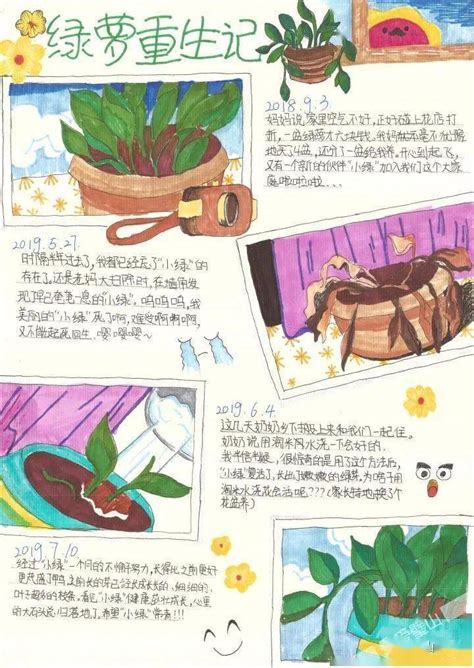 绿萝重生记
2018.9.3
妈妈说,家里空气不好,正好碰上花店打
折,一盆绿萝才六块钱。我妈就还是不犹豫
地买了4盆,还分了一盆给我养。开心到起飞,
又有一个新的伙伴"小绿"加入我们这个大家
庭啦啦啦、、、
2019.5.27.
时隔半年过去了,我都已经忘了"小绿"的
存在了。还是老妈大扫除时,在墙角发
现了已奄奄一息的"小绿"。呜呜呜,我
美丽的"小绿"死了啊,难受啊啊啊,
又不能起死回生,嘤嘤嘤~
2019.6.4.
这几天奶奶乡下坂上来和我们一起住。
奶奶说用淘米水浇一下会好的。
我半信半疑,很惊奇的是用了这个方法后,
"小绿"复活了,长出了嫩嫩的绿芽。为啥子用
淘米水浇花会活呢???(家长特地换了个
花盆养)
2019.7.10.
经过"小绿"一个月的不懈努力,长得比之前更好
更茂盛了鸭。之前长的芽已经长成长长的、细细的、
叶子超多的枝条。看见"小绿"健康茁壮成长,心里
的大石头总归落地了,希望"小绿"常春!!!